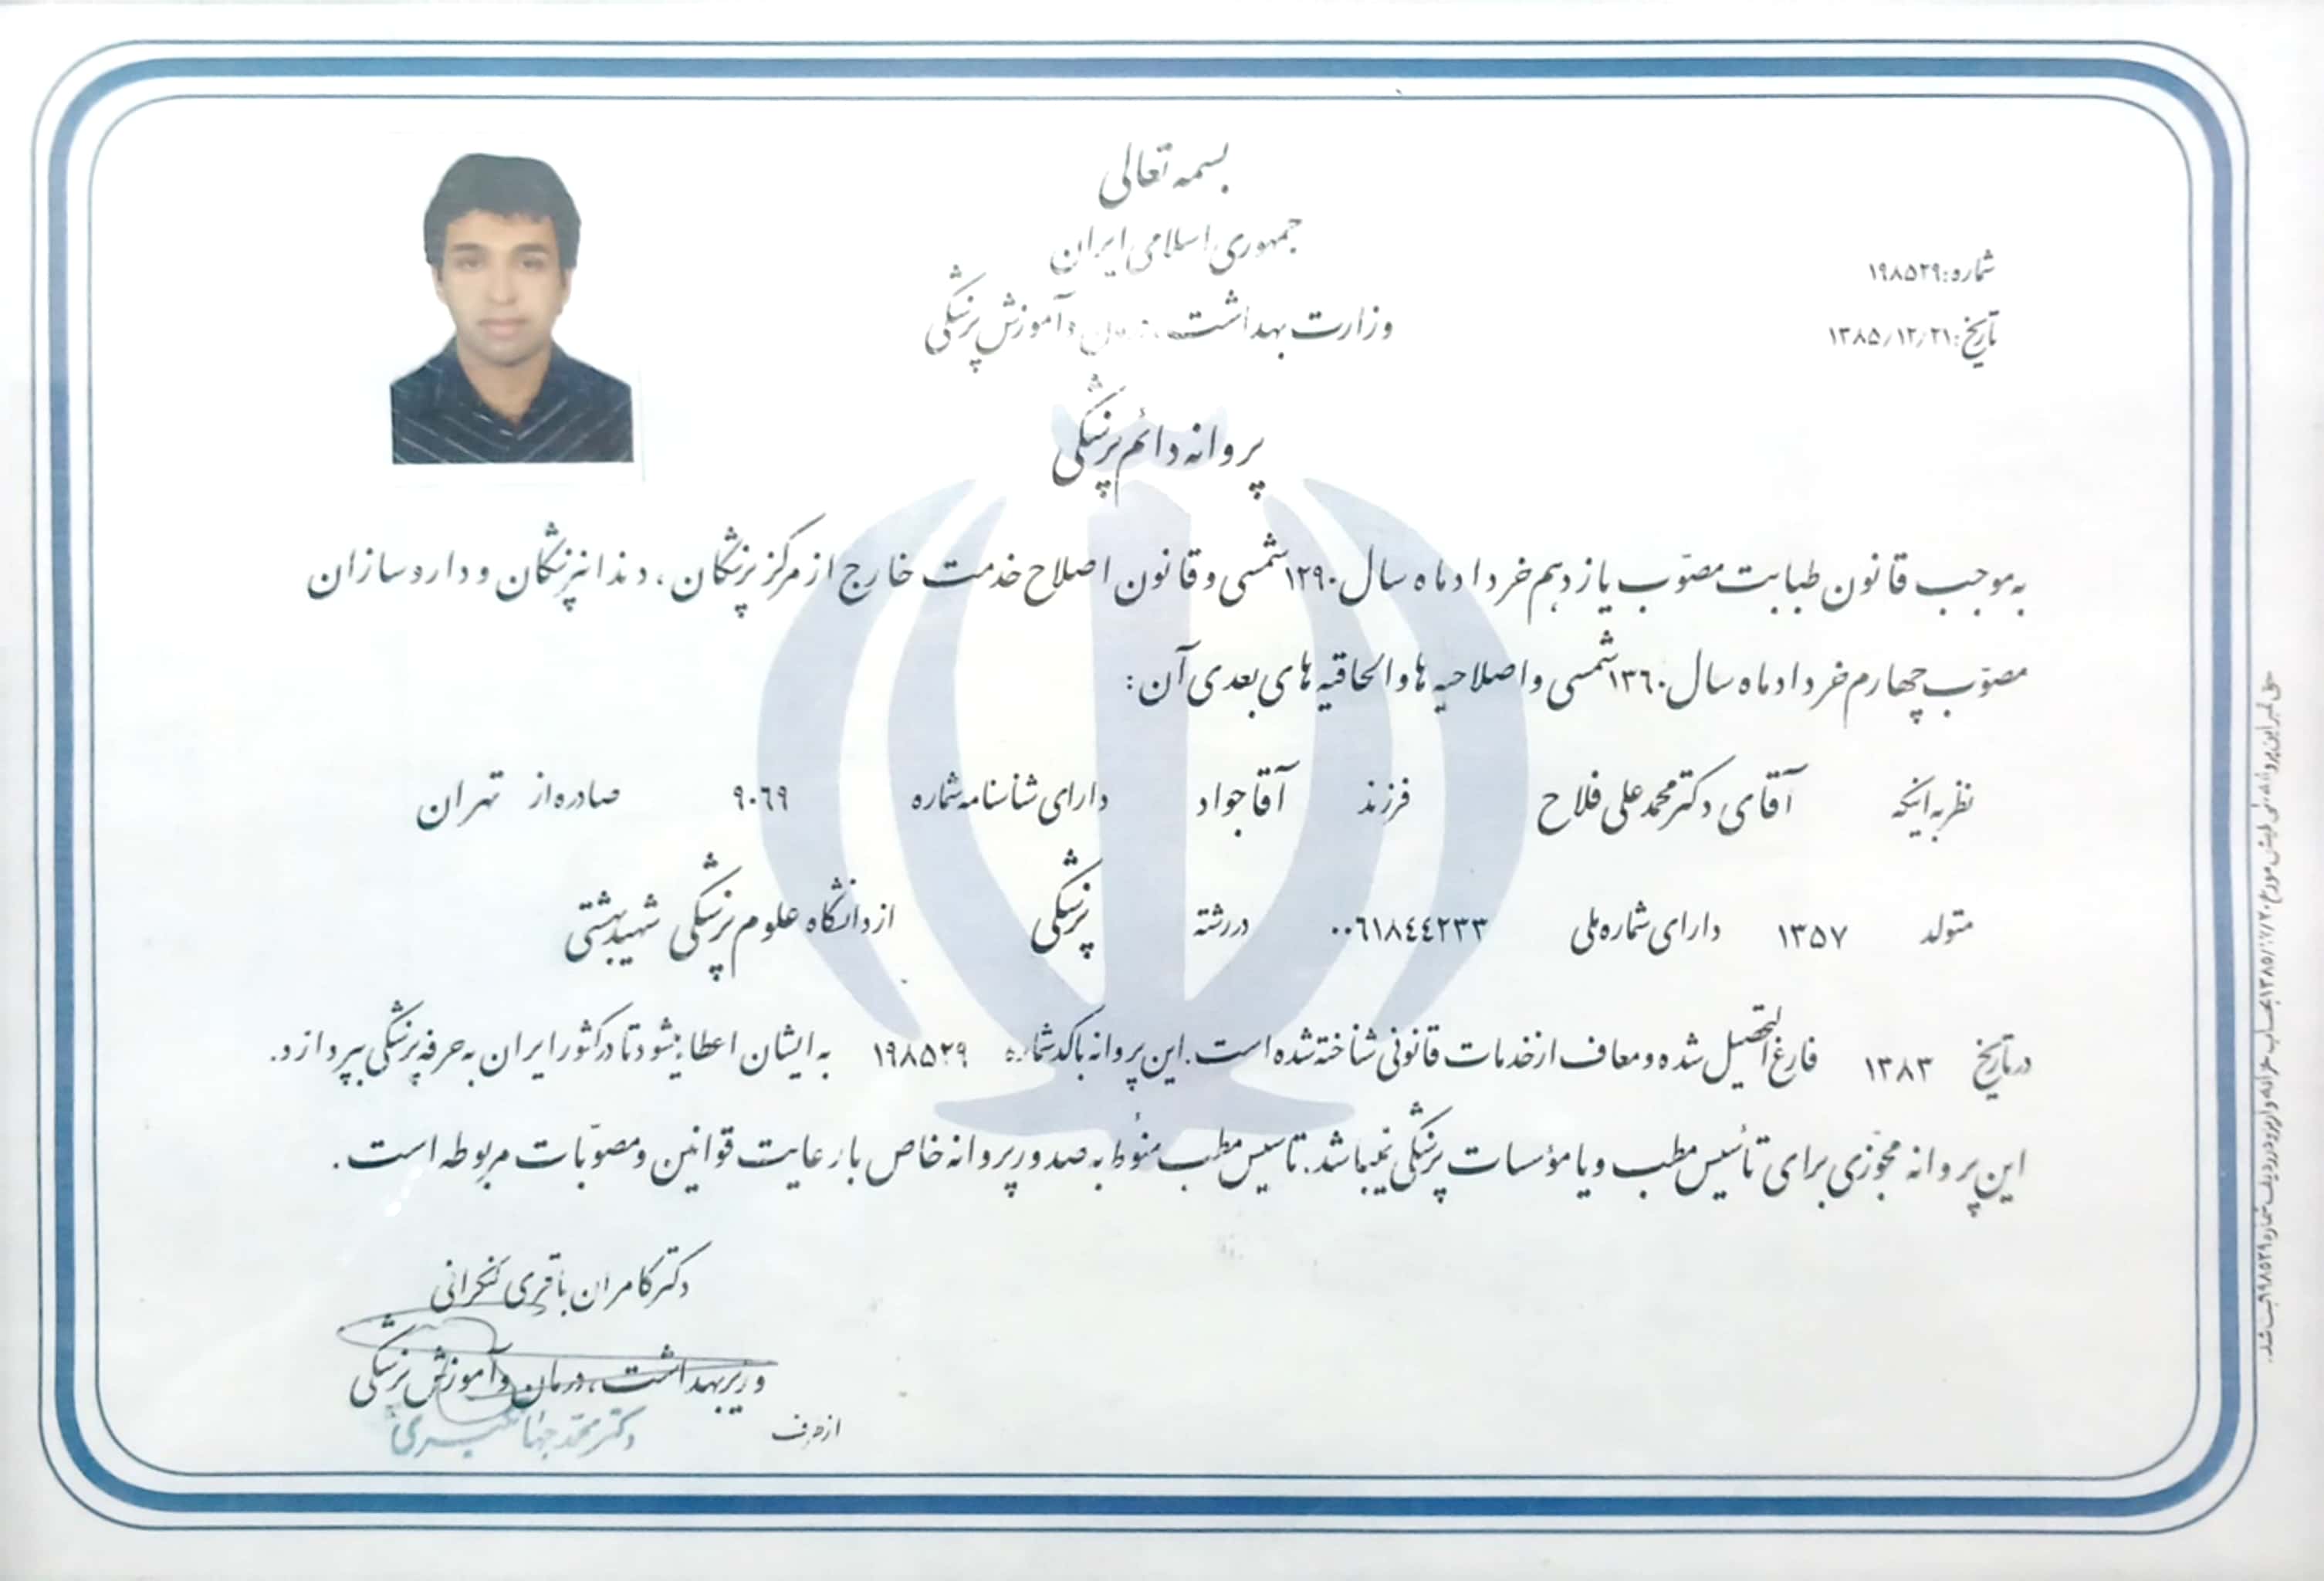 بسمه تعالی
جمهوری اسلامی ایران
وزارت بهداشت، درمان و آموزش پزشکی
شماره: ۱۹۸۵۲۹
تاریخ: ۱۳۸۵/۱۲/۲۱
پروانه دائم پزشکی
به موجب قانون طبابت مصوّب یازدهم خرداد ماه سال ۱۲۹۰ شمسی و قانون اصلاح خدمت خارج از مرکز پزشکان، دندانپزشکان و داروسازان
مصوّب چهارم خرداد ماه سال ۱۳۶۰ شمسی و اصلاحیه ها و الحاقیه های بعدی آن:
نظر به اینکه آقای دکتر محمد علی فلاح فرزند آقا جواد دارای شناسنامه شماره ۹۰۶۹ صادره از تهران
متولد ۱۳۵۷ دارای شماره ملی ۰۰۶۱۸۴۴۲۳۳ در رشته پزشکی از دانشگاه علوم پزشکی شهید بهشتی
در تاریخ ۱۳۸۳ فارغ التحصیل شده و معاف از خدمات قانونی شناخته شده است. این پروانه با کد شماره ۱۹۸۵۲۹ به ایشان اعطا میشود تا در کشور ایران به حرفه پزشکی بپردازد.
این پروانه مجوّزی برای تأسیس مطب و یا مؤسسات پزشکی نمیباشد. تاسیس مطب منوُط به صدور پروانه خاص با رعایت قوانین و مصوّبات مربوطه است.
دکتر کامران باقری لنکرانی
وزیر بهداشت، درمان و آموزش پزشکی
از طرف
دکتر محمد جهانگیری